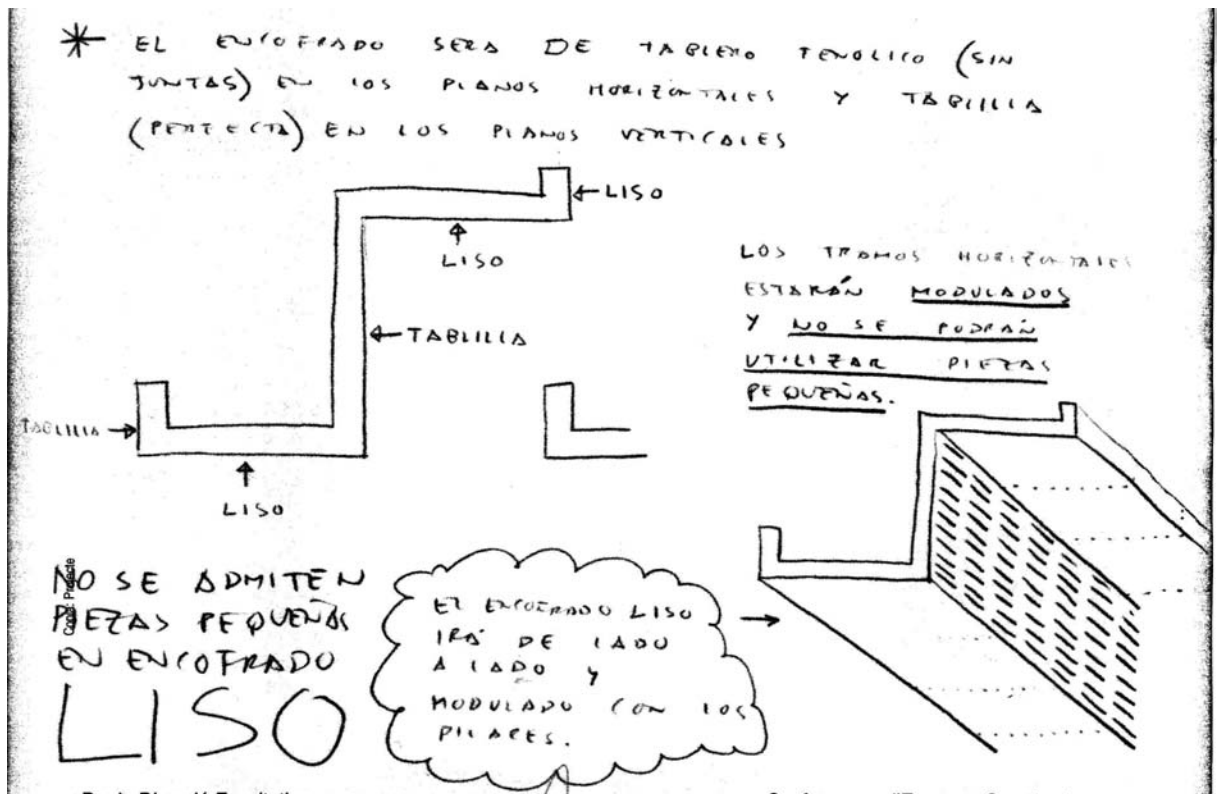 * EL ENCOFRADO SERA DE TABLERO FENOLICO (SIN
JUNTAS) EN LOS PLANOS HORIZONTALES Y TABLILLA
(PERFECTA) EN LOS PLANOS VERTICALES
LISO
LISO
TABLILLA
TABLILLA
LISO
LOS TRAMOS HORIZONTALES
ESTARÁN MODULADOS
Y NO SE PODRÁN
UTILIZAR PIEZAS
PEQUEÑAS.
NO SE ADMITEN
PIEZAS PEQUEÑAS
EN ENCOFRADO
LISO
EL ENCOFRADO LISO
IRÁ DE LADO
A LADO Y
MODULADO CON LOS
PILARES.